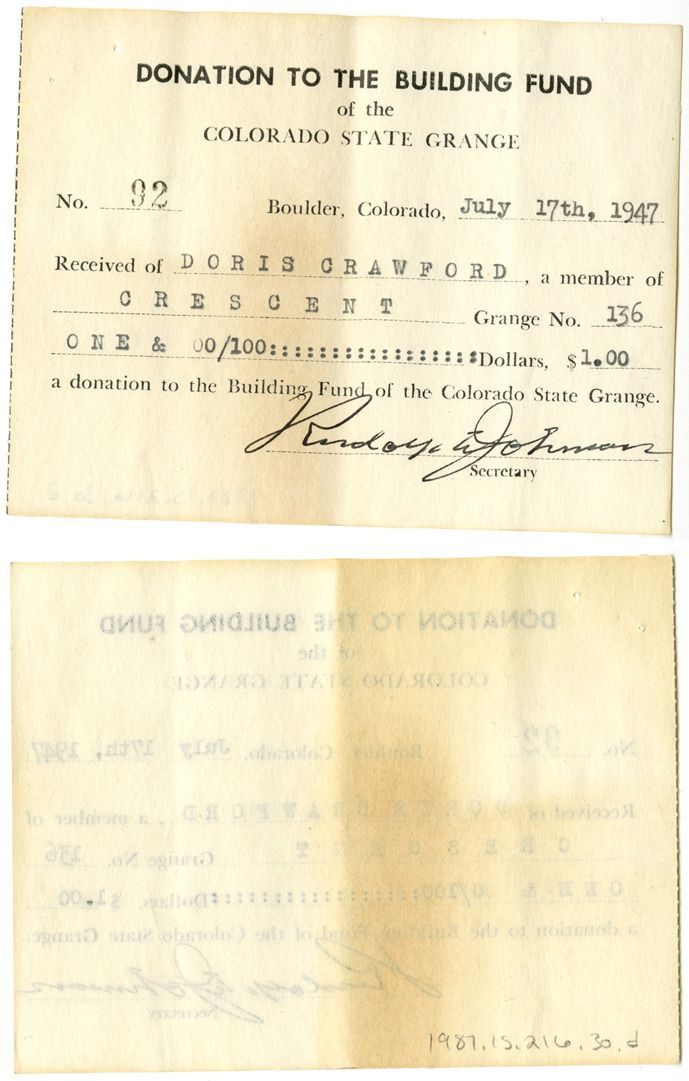 DONATION TO THE BUILDING FUND
of the
COLORADO STATE GRANGE
No. 92 Boulder, Colorado, July 17th, 1947
Received of DORIS CRAWFORD, a member of
CRESCENT Grange No. 136
ONE & 00/100:::::::::::::::::: Dollars, $1.00
a donation to the Building Fund of the Colorado State Grange.
Johnson
Secretary
1987.15.216.30.d